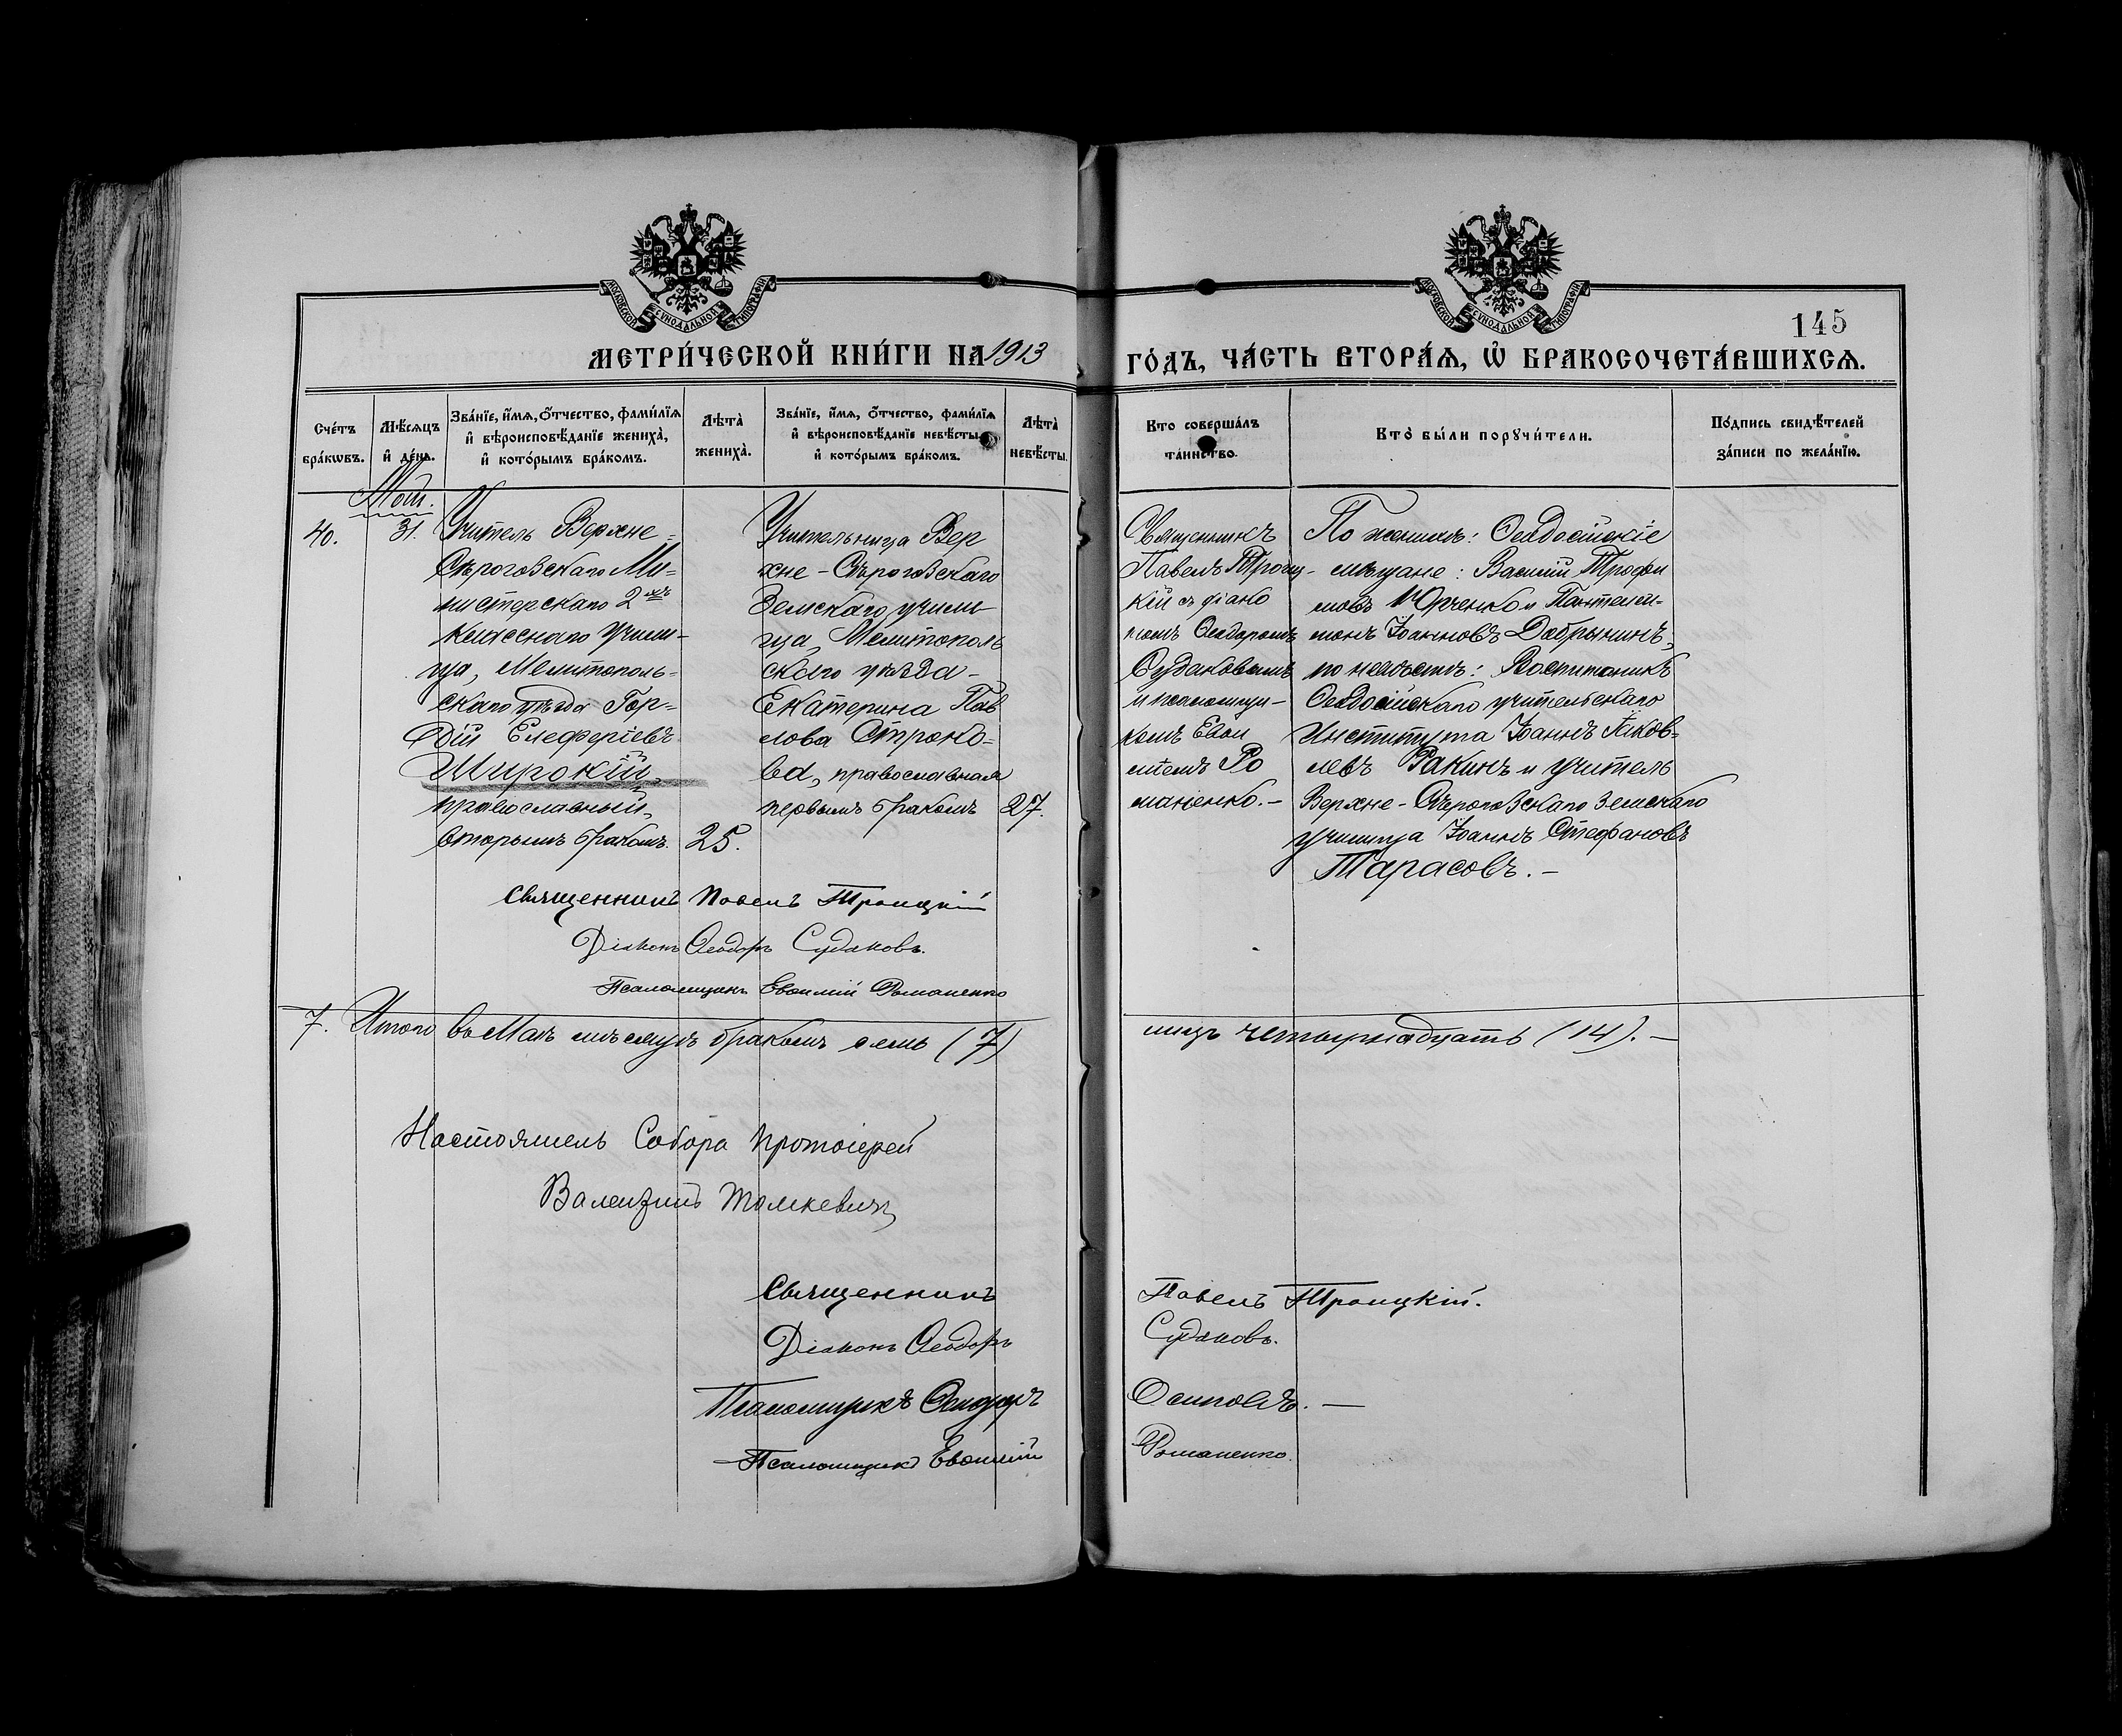 МОСКОВСКОЙ СѴНОДАЛЬНОЙ ТИПОГРАФІИ
МОСКОВСКОЙ СѴНОДАЛЬНОЙ ТИПОГРАФІИ
145
МЕТРИ́ЧЕСКОЙ КНИ́ГИ НА 1913
ГО́ДЪ, ЧА́СТЬ ВТОРА́Ѧ, Ѡ҆ БРАКОСОЧЕТА́ВШИХСѦ.
Сче́тъ бра́кѡвъ.
Мѣ́сѧцъ и҆ де́нь.
Зва́нїе, и҆́мѧ, ѻ҆́тчество, фами́лїѧ
и҆ вѣроисповѣ́данїе жениха̀,
и҆ кото́рымъ бра́комъ.
Лѣта̀ жениха̀.
Зва́нїе, и҆́мѧ, ѻ҆́тчество, фами́лїѧ
и҆ вѣроисповѣ́данїе невѣ́сты,
и҆ кото́рымъ бра́комъ.
Лѣта̀ невѣ́сты.
Кто соверша́лъ та́инство.
Кто̀ бы́ли порꙋчи́тели.
По́дпись свидѣ́телей
за́писи по жела́нїю.
Май.
40.
31.
Учитель Верхне-
Сѣрогозскаго Ми-
нистерскаго 2хъ
класснаго учили-
ща, Мелитополь-
скаго уѣзда Гор-
дій Елеферіевъ
Широкій,
православный,
вторымъ бракомъ.
25.
Учительница Вер
хне-Сѣрогозскаго
Земскаго учили
ща, Мелитополь
скаго уѣзда -
Екатерина Пав
лова Строко-
ва, православная
первымъ бракомъ
27.
Священникъ
Павелъ Троиц-
кій съ діако
номъ Ѳеодоромъ
Судаковымъ
и псаломщи-
комъ Евѳи
міемъ Ро
маненко.-
По женихѣ: Ѳеодосійскіе
мѣщане: Василій Трофи
мовъ Юрченко и Пантелей-
монъ Іоанновъ Добрынинъ,
по невѣстѣ: Воспитаникъ
Ѳеодосійскаго учительскаго
Института Іоаннъ Яков-
левъ Ракинъ и учитель
Верхне-Сѣрогозскаго Земскаго
училища Іоаннъ Стефановъ
Тарасовъ.-
Священникъ Павелъ Троицкій
Діаконъ Ѳеодоръ Судаковъ.
Псаломщикъ Евѳимій Романенко
7. Итого въ Маѣ мѣсяцѣ бракомъ семь (7)
лицъ четырнадцать (14).-
Настоятель Собора Протоіерей
Томкевичъ
Священникъ Павелъ Троицкій.
Діаконъ Ѳеодоръ Судаковъ.
Псаломщикъ Осиповъ.-
Псаломщикъ Евѳимій Романенко.